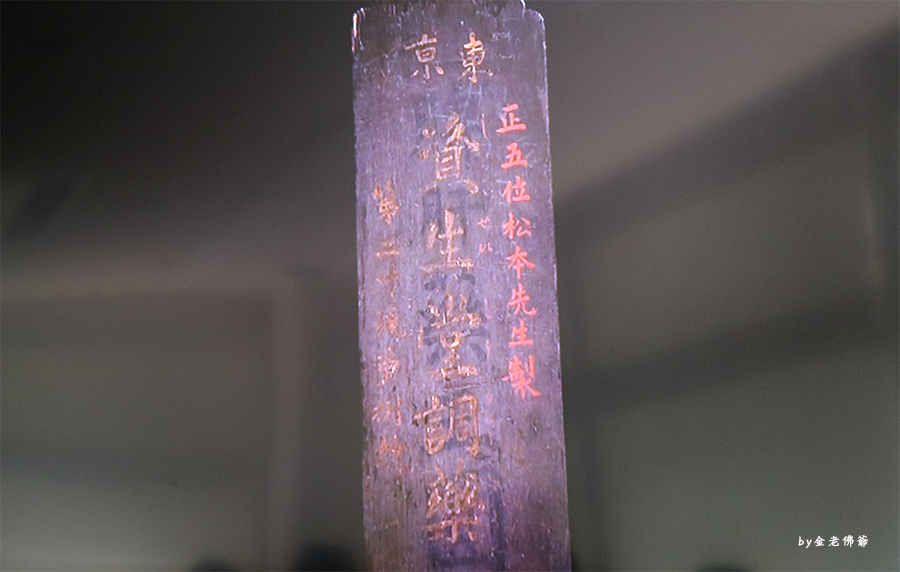 東京
正五位松本先生製
せい
資生堂調藥
第二十號
by金老佛爺